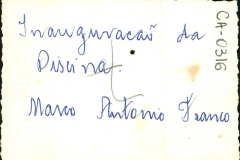 Inauguracão da
Piscina.
Marco Antonio Franco
CA-0316